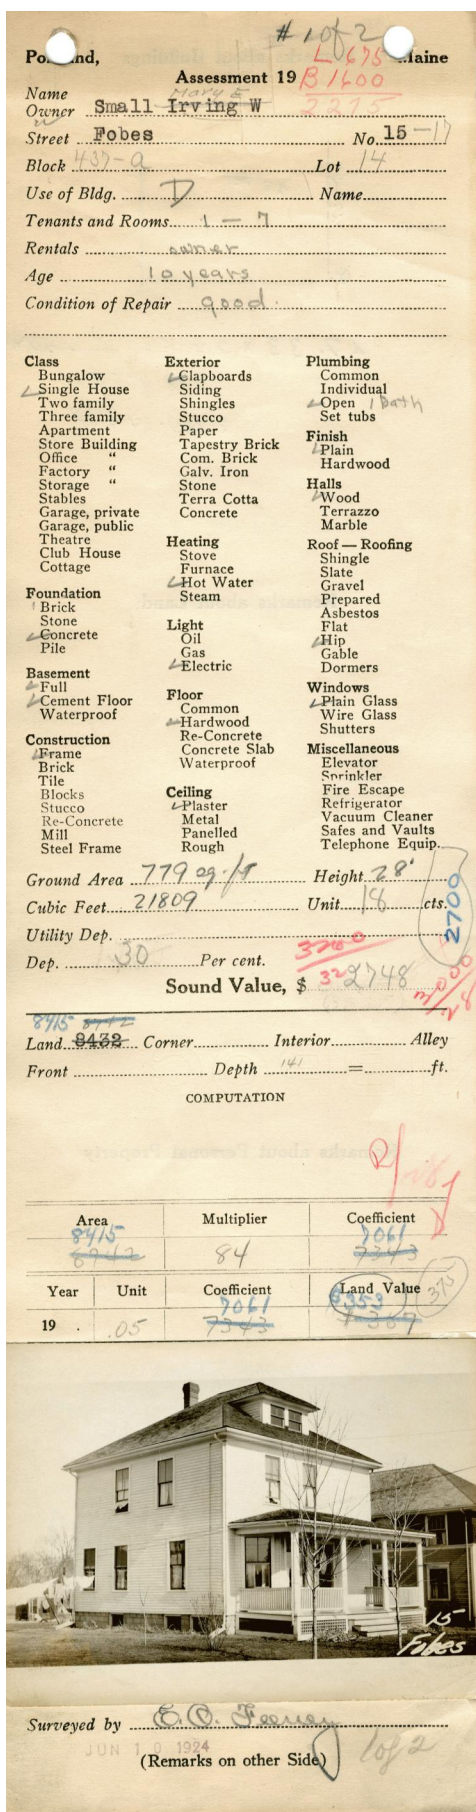 # 1 of 2
Portland, Maine
L 675
Assessment 19 B 1600
2275
Name Mary E
Owner Small Irving W
Street Fobes No. 15-17
Block 437-a Lot 14
Use of Bldg. D Name
Tenants and Rooms 1 - 7
Rentals owner
Age 10 years
Condition of Repair good
Class
Bungalow
✓ Single House
Two family
Three family
Apartment
Store Building
Office "
Factory "
Storage "
Stables
Garage, private
Garage, public
Theatre
Club House
Cottage
Foundation
Brick
Stone
✓ Concrete
Pile
Basement
✓ Full
✓ Cement Floor
Waterproof
Construction
✓ Frame
Brick
Tile
Blocks
Stucco
Re-Concrete
Mill
Steel Frame
Exterior
✓ Clapboards
Siding
Shingles
Stucco
Paper
Tapestry Brick
Com. Brick
Galv. Iron
Stone
Terra Cotta
Concrete
Heating
Stove
Furnace
✓ Hot Water
Steam
Light
Oil
Gas
✓ Electric
Floor
Common
✓ Hardwood
Re-Concrete
Concrete Slab
Waterproof
Ceiling
✓ Plaster
Metal
Panelled
Rough
Plumbing
Common
Individual
✓ Open 1 Bath
Set tubs
Finish
✓ Plain
Hardwood
Halls
✓ Wood
Terrazzo
Marble
Roof — Roofing
Shingle
Slate
Gravel
Prepared
Asbestos
Flat
✓ Hip
Gable
Dormers
Windows
✓ Plain Glass
Wire Glass
Shutters
Miscellaneous
Elevator
Sprinkler
Fire Escape
Refrigerator
Vacuum Cleaner
Safes and Vaults
Telephone Equip.
Ground Area 779 sq. ft Height 28'
Cubic Feet 21809 Unit 18 cts.
2700
Utility Dep.
Dep. 30 Per cent.
Sound Value, $ 2748
8415 8742
Land 8432 Corner Interior Alley
Front Depth 141 = ft.
COMPUTATION
Area Multiplier Coefficient
8415 7061
8742 84 7343
Year Unit Coefficient Land Value
7061 $353 375
19 . .05 7343 $367
15
Fobes
Surveyed by E. C. Feeney
JUN 10 1924
(Remarks on other Side)
1 of 2